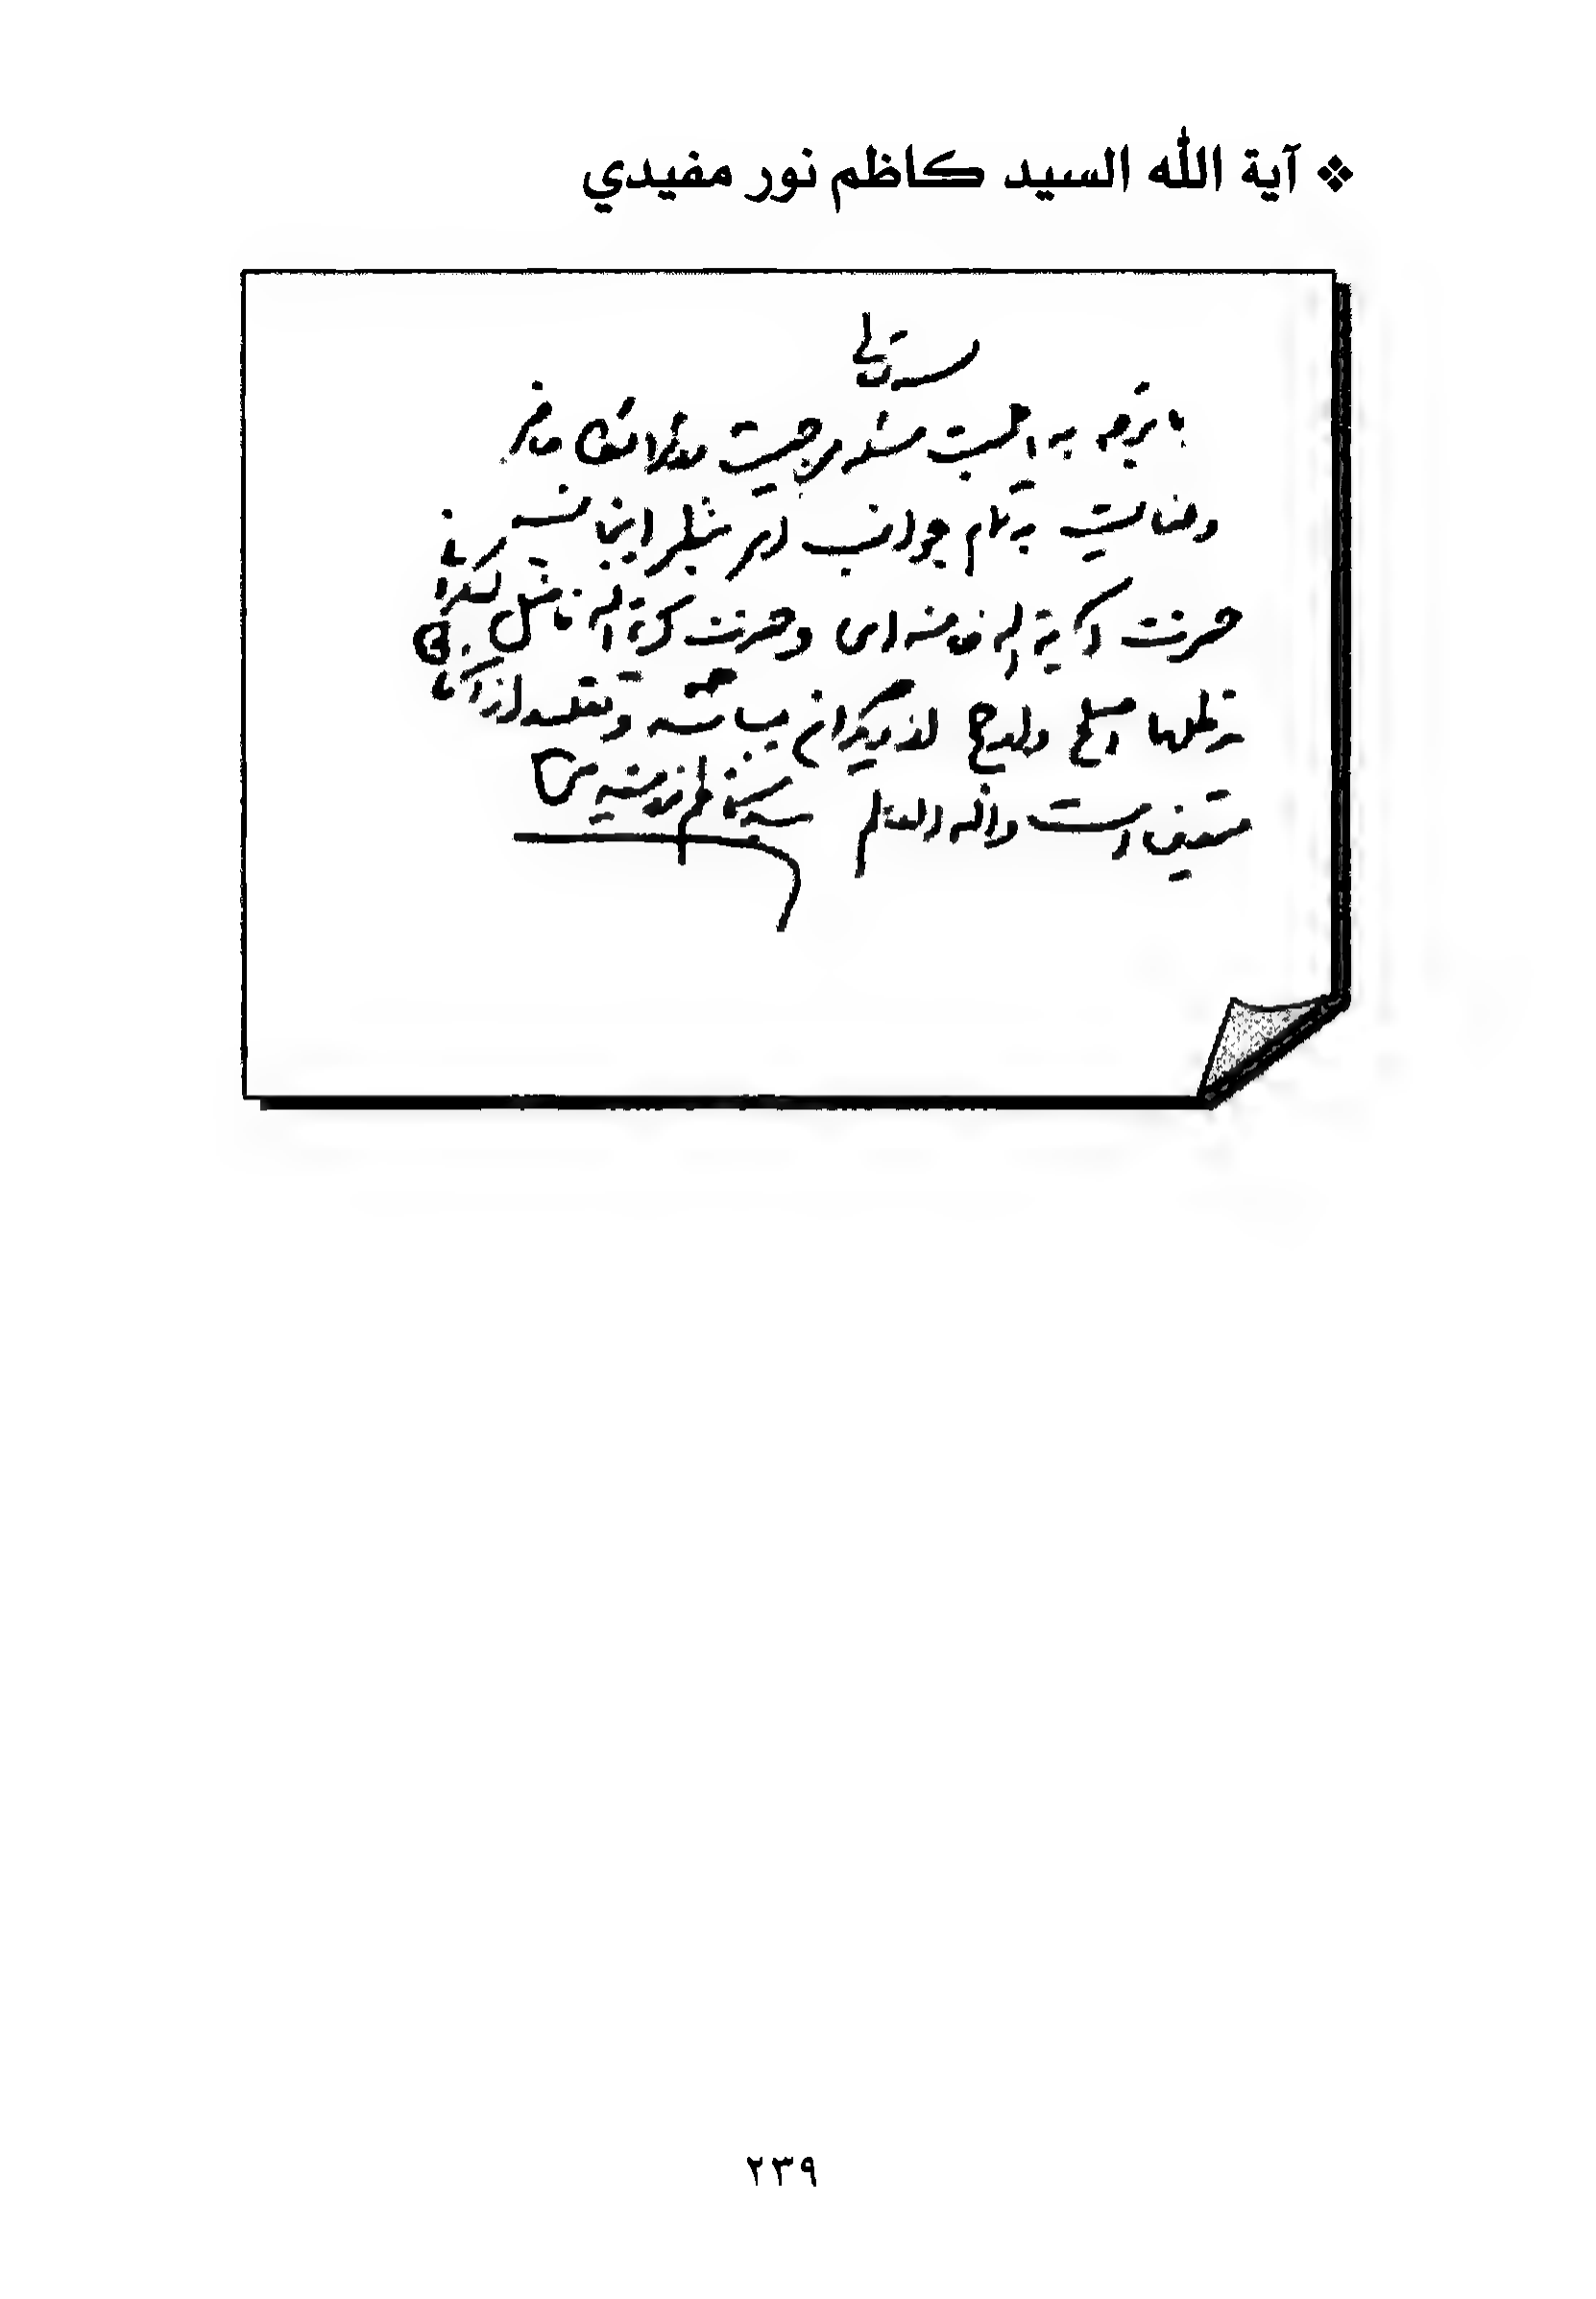 ❖ آية الله السيد كاظم نور مفيدي
بسمه تعالی
با توجه به اهمیت مسئله مرجعیت در شرائط حاضر
وعنایت به تمام جوانب امر بنظر اینجانب
حضرت آیة الله خامنه ای وحضرت آیة الله فاضل لنکرانی
مدظلهما اصلح واورع از دیگران میباشند وتقلید از آنان
متعین است والله العالم سید کاظم نورمفیدی
٢٣٩